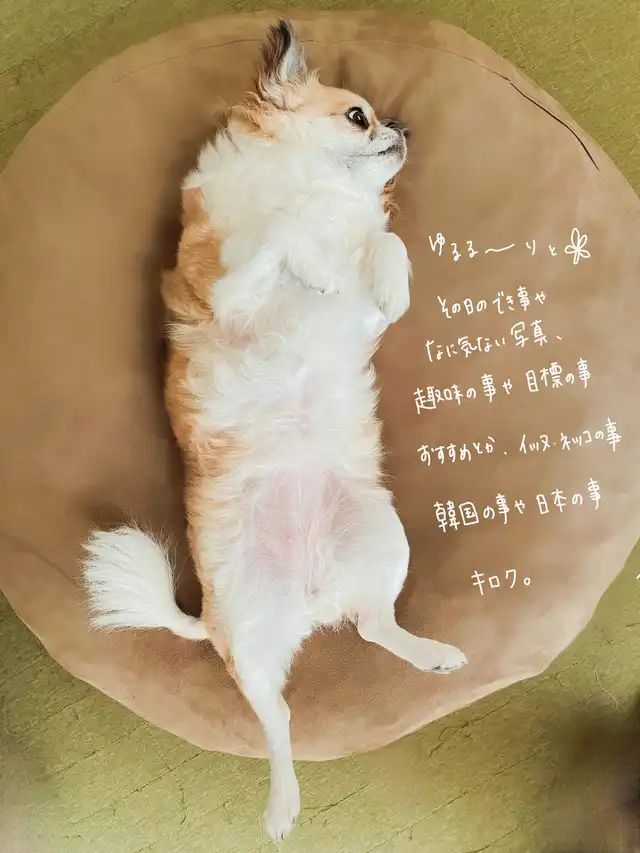 ゆるる〜りと
その日のでき事や
なに気ない写真、
趣味の事や目標の事
おすすめとか、イッヌ・ネッコの事
韓国の事や日本の事
キロク。